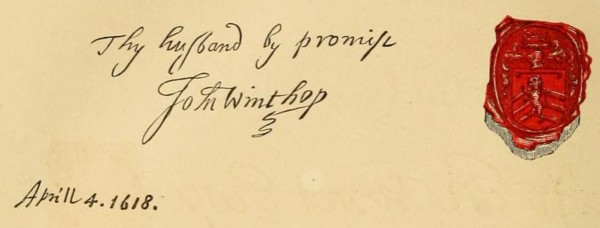 Thy husband by promise
John Winthop
Aprill 4. 1618.